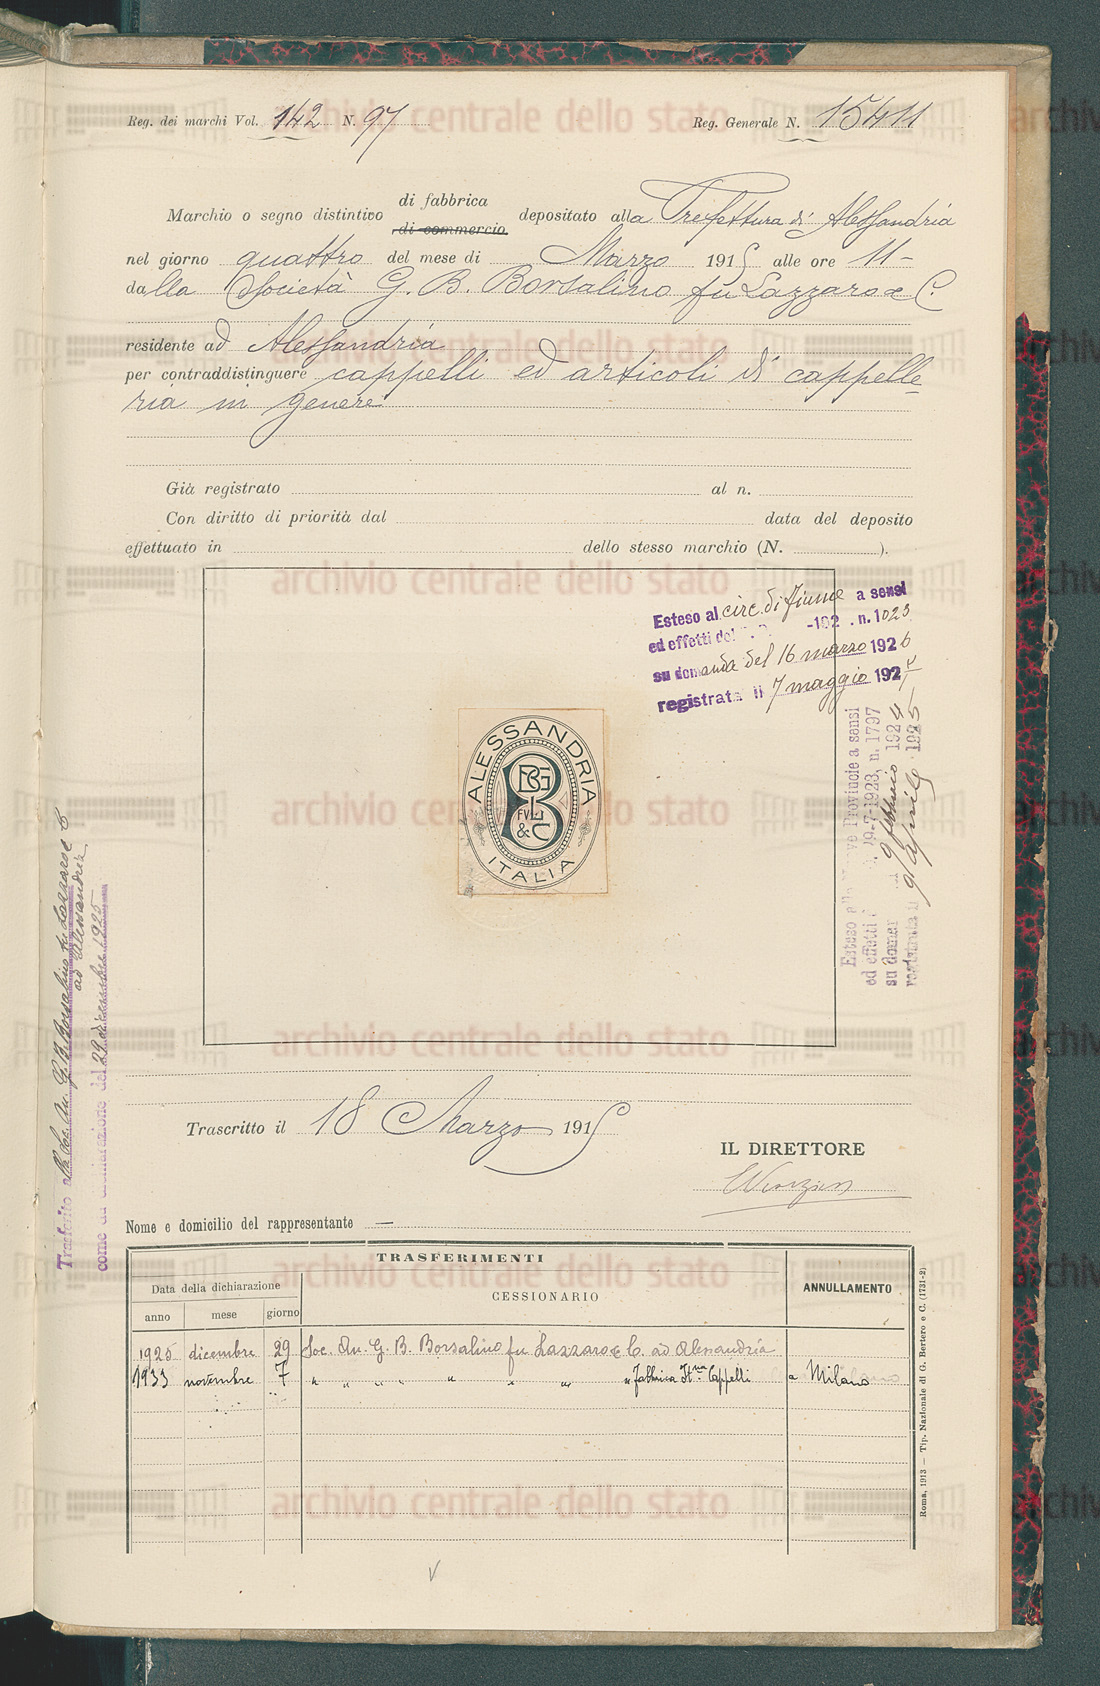 Reg. dei marchi Vol. 142 N. 97
Reg. Generale N. 15411
Marchio o segno distintivo di fabbrica di commercio depositato alla Prefettura di Alessandria
nel giorno quattro del mese di Marzo 1915 alle ore 11-
dalla Società G. B. Borsalino fu Lazzaro e C.
residente ad Alessandria
per contraddistinguere cappelli ed articoli di cappelle=
ria in genere
Già registrato al n.
Con diritto di priorità dal data del deposito
effettuato in dello stesso marchio (N. ).
Esteso al circ. di Fiume a sensi
ed effetti del -192 . n. 1023
su domanda del 16 marzo 1926
registrata il 7 maggio 192
ALESSANDRIA
BG
B
FU L
& C
ITALIA
Esteso alle nuove Provincie a sensi
ed effetti 29-7-1923, n. 1797
su doman 9 febbraio 1924
registrata il 9 aprile 1925
Trasferito alla Soc. An. G. B. Borsalino fu Lazzaro e C
ad Alessandria
come da dichiarazione del 29 dicembre 1925
Trascritto il 18 Marzo 1915
IL DIRETTORE
Nome e domicilio del rappresentante —
TRASFERIMENTI
Data della dichiarazione
CESSIONARIO
ANNULLAMENTO
anno mese giorno
1925 dicembre 29 Soc. An. G. B. Borsalino fu Lazzaro e C. ad Alessandria
1933 novembre 7 " " " " " " " " Fabbrica Cappelli a Milano
Roma, 1913 — Tip. Nazionale di G. Bertero e C. (1731-2)
archivio centrale dello stato
archivio centrale dello stato
archivio centrale dello stato
archivio centrale dello stato
archivio centrale dello stato
archivio centrale dello stato
archivio centrale dello stato